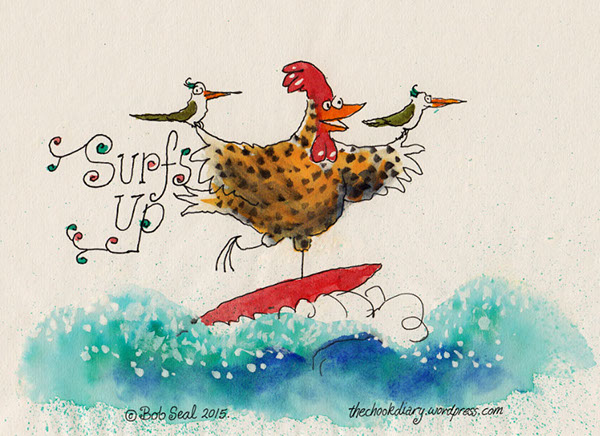 Surfs
Up
© Bob Seal 2015.
thechookdiary.wordpress.com